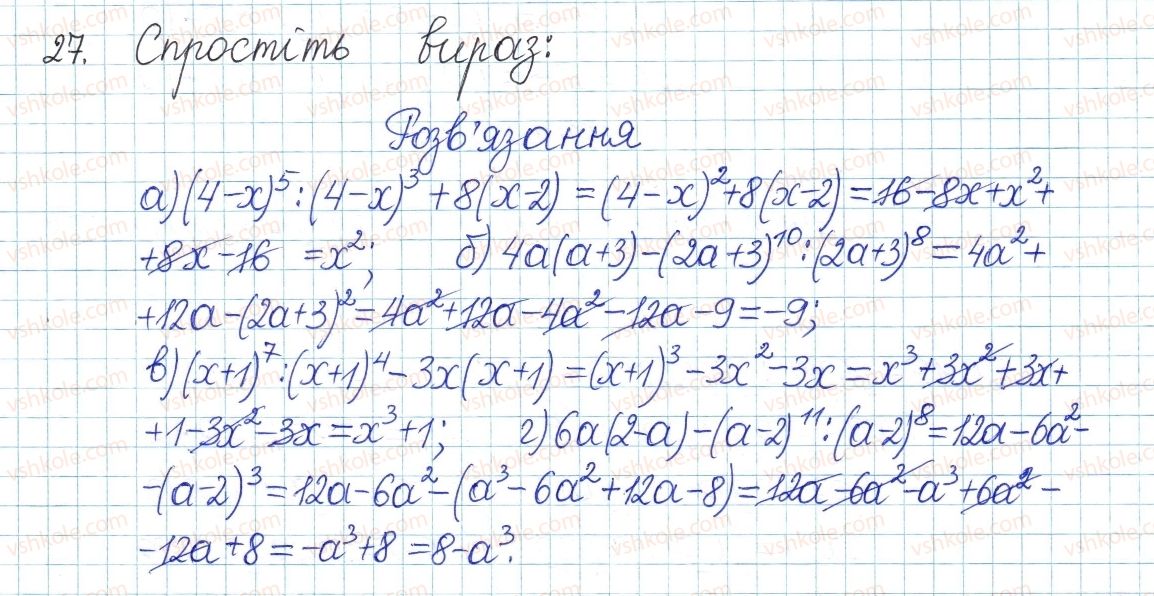 27. Спростіть вираз:
Розв'язання
а) (4-x)⁵:(4-x)³+8(x-2)=(4-x)²+8(x-2)=16-8x+x²+
+8x-16 =x²; б) 4a(a+3)-(2a+3)¹⁰:(2a+3)⁸=4a²+
+12a-(2a+3)²=4a²+12a-4a²-12a-9=-9;
в) (x+1)⁷:(x+1)⁴-3x(x+1)=(x+1)³-3x²-3x=x³+3x²+3x+
+1-3x²-3x=x³+1; г) 6a(2-a)-(a-2)¹¹:(a-2)⁸=12a-6a²-
-(a-2)³=12a-6a²-(a³-6a²+12a-8)=12a-6a²-a³+6a²-
-12a+8=-a³+8=8-a³.